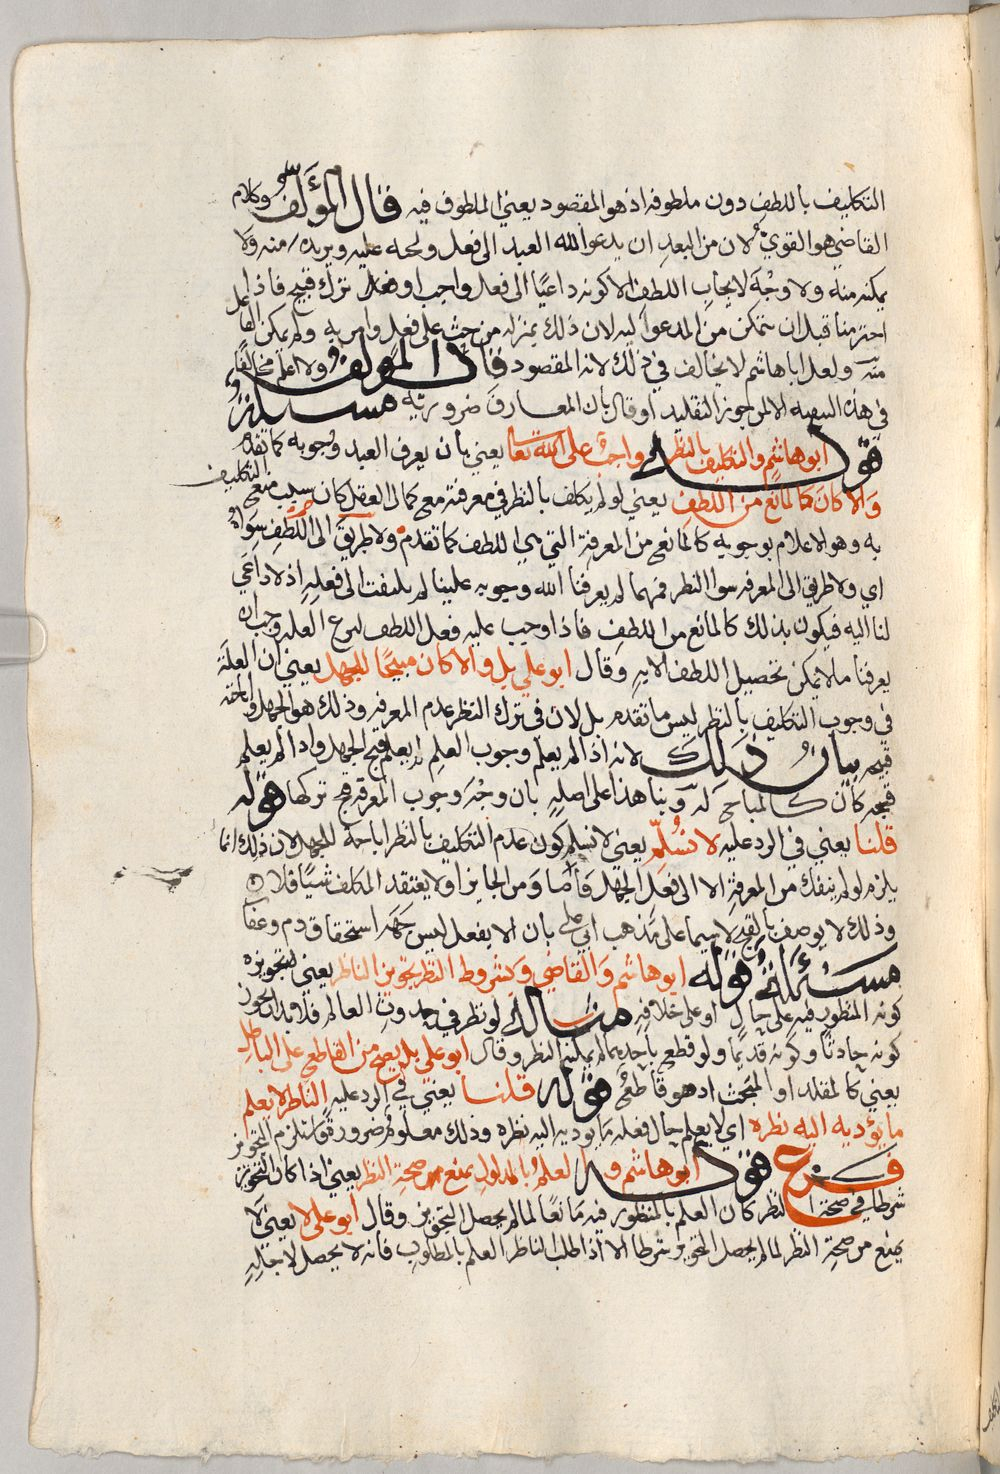 التكليف باللطف دون ملطوفه اذ هو المقصود يعني الملطوف فيه قال المؤلف وكلام
القاضي هو القوي لان من البعد ان يدعو الله العبد الى فعل ولحمه عليه ويريده منه ولا
يمكنه منه ولا وجه لايجاب اللطف الا كونه داعيا الى فعل واجب او ترك قبيح فاذا
اخترمنا قبل ان نتمكن من المدعو اليه لان ذلك بمنزله من حث على فعل وامر به ولم يمكن الفاعل
منه ولعل ابا هاشم لا يخالف في ذلك لانه المقصود قال المؤلف ولا اعلم مخالفا
في هذه المن جوز التقليد او قال بان المعارف ضرورية مسئلة
قوله ابو هاشم والتكليف بالنظر واجب على الله تعالى يعني بان يعرف العبد وجوبه كما تقدم
والا كان كالمانع من اللطف يعني لو لم يكلف بالنظر في معرفته مع كمال العقل كان سبب منع التكليف
به وهو الاعلام بوجوبه كالمانع من المعرفة التي هي اللطف كما تقدم ولا طريق الى اللطف سواه
اي ولا طريق الى المعرفه سوا النظر فمهما لم يعرفنا الله وجوبه علينا لم يلتفت الى فعله اذ لا داعي
لنا اليه فيكون بذلك كالمانع من اللطف فاذا وجب عليه فعل اللطف العله وجب ان
يعرفنا ما لا يمكن تحصيل اللطف الا به وقال ابو علي بل والا كان مبيحا للجهل يعني ان العلة
في وجوب التكليف بالنظر ليس ما تقدم بل لان في ترك النظر عدم المعرفه وذلك هو الجهل واباحته
قبيحه بيان ذلك لانه اذا لم يعلم وجوب العلم لم يعلم قبح الجهل واذا لم يعلم
قبحه كان كالمباح له وبنا هذا على اصله بان وجه وجوب المعرفة قبح تركها قوله
قلنا يعني في الرد عليه لا نسلم يعني لا نسلم كون عدم التكليف بالنظر اباحة للجهل لان ذلك انما
يلزم لو لم ينفك من المعرفة الا الى فعل الجهل ومن الجايز او لا يعتقد المكلف شيئا فلا
وذلك لا يوصف بالقبح لا سيما على مذهب ابي علي بان الا يفعل ليس جهة استحقاق ذم وعقاب
مسئلة قوله ابو هاشم والقاضي وشروط النظر تجويز الناظر يعني تجويزه
كونه المنظور فيه على حال او على خلافه مثاله لو نظر في حدوث العالم فلا بد ان يجوز
كونه حادثا وكونه قديما ولو قطع باحدهما لم يمكنه النظر وقال ابو علي بل يصح من القاطع على الباطل
يعني كالمقلد او المبخت اذ هو قاطع قوله قلنا يعني في الرد عليه الناظر لا يعلم
ما يؤديه اليه نظره اي لا يعلم حال فعله ما يوديه اليه نظره وذلك معلوم ضرورة ويستلزم التجويز
فرع قوله ابو هاشم والعلم بالمدلول يمنع من صحة النظر يعني اذا كان التجويز
شرطا في صحة النظر كان العلم بالمنظور فيه مانعا لما لم يحصل التجويز وقال ابو علي لا يعني لا
يمنع من صحة النظر لما لم يحصل وشرطا الا اذا طلب الناظر العلم بالمطلوب فانه لا يحصل لاجله